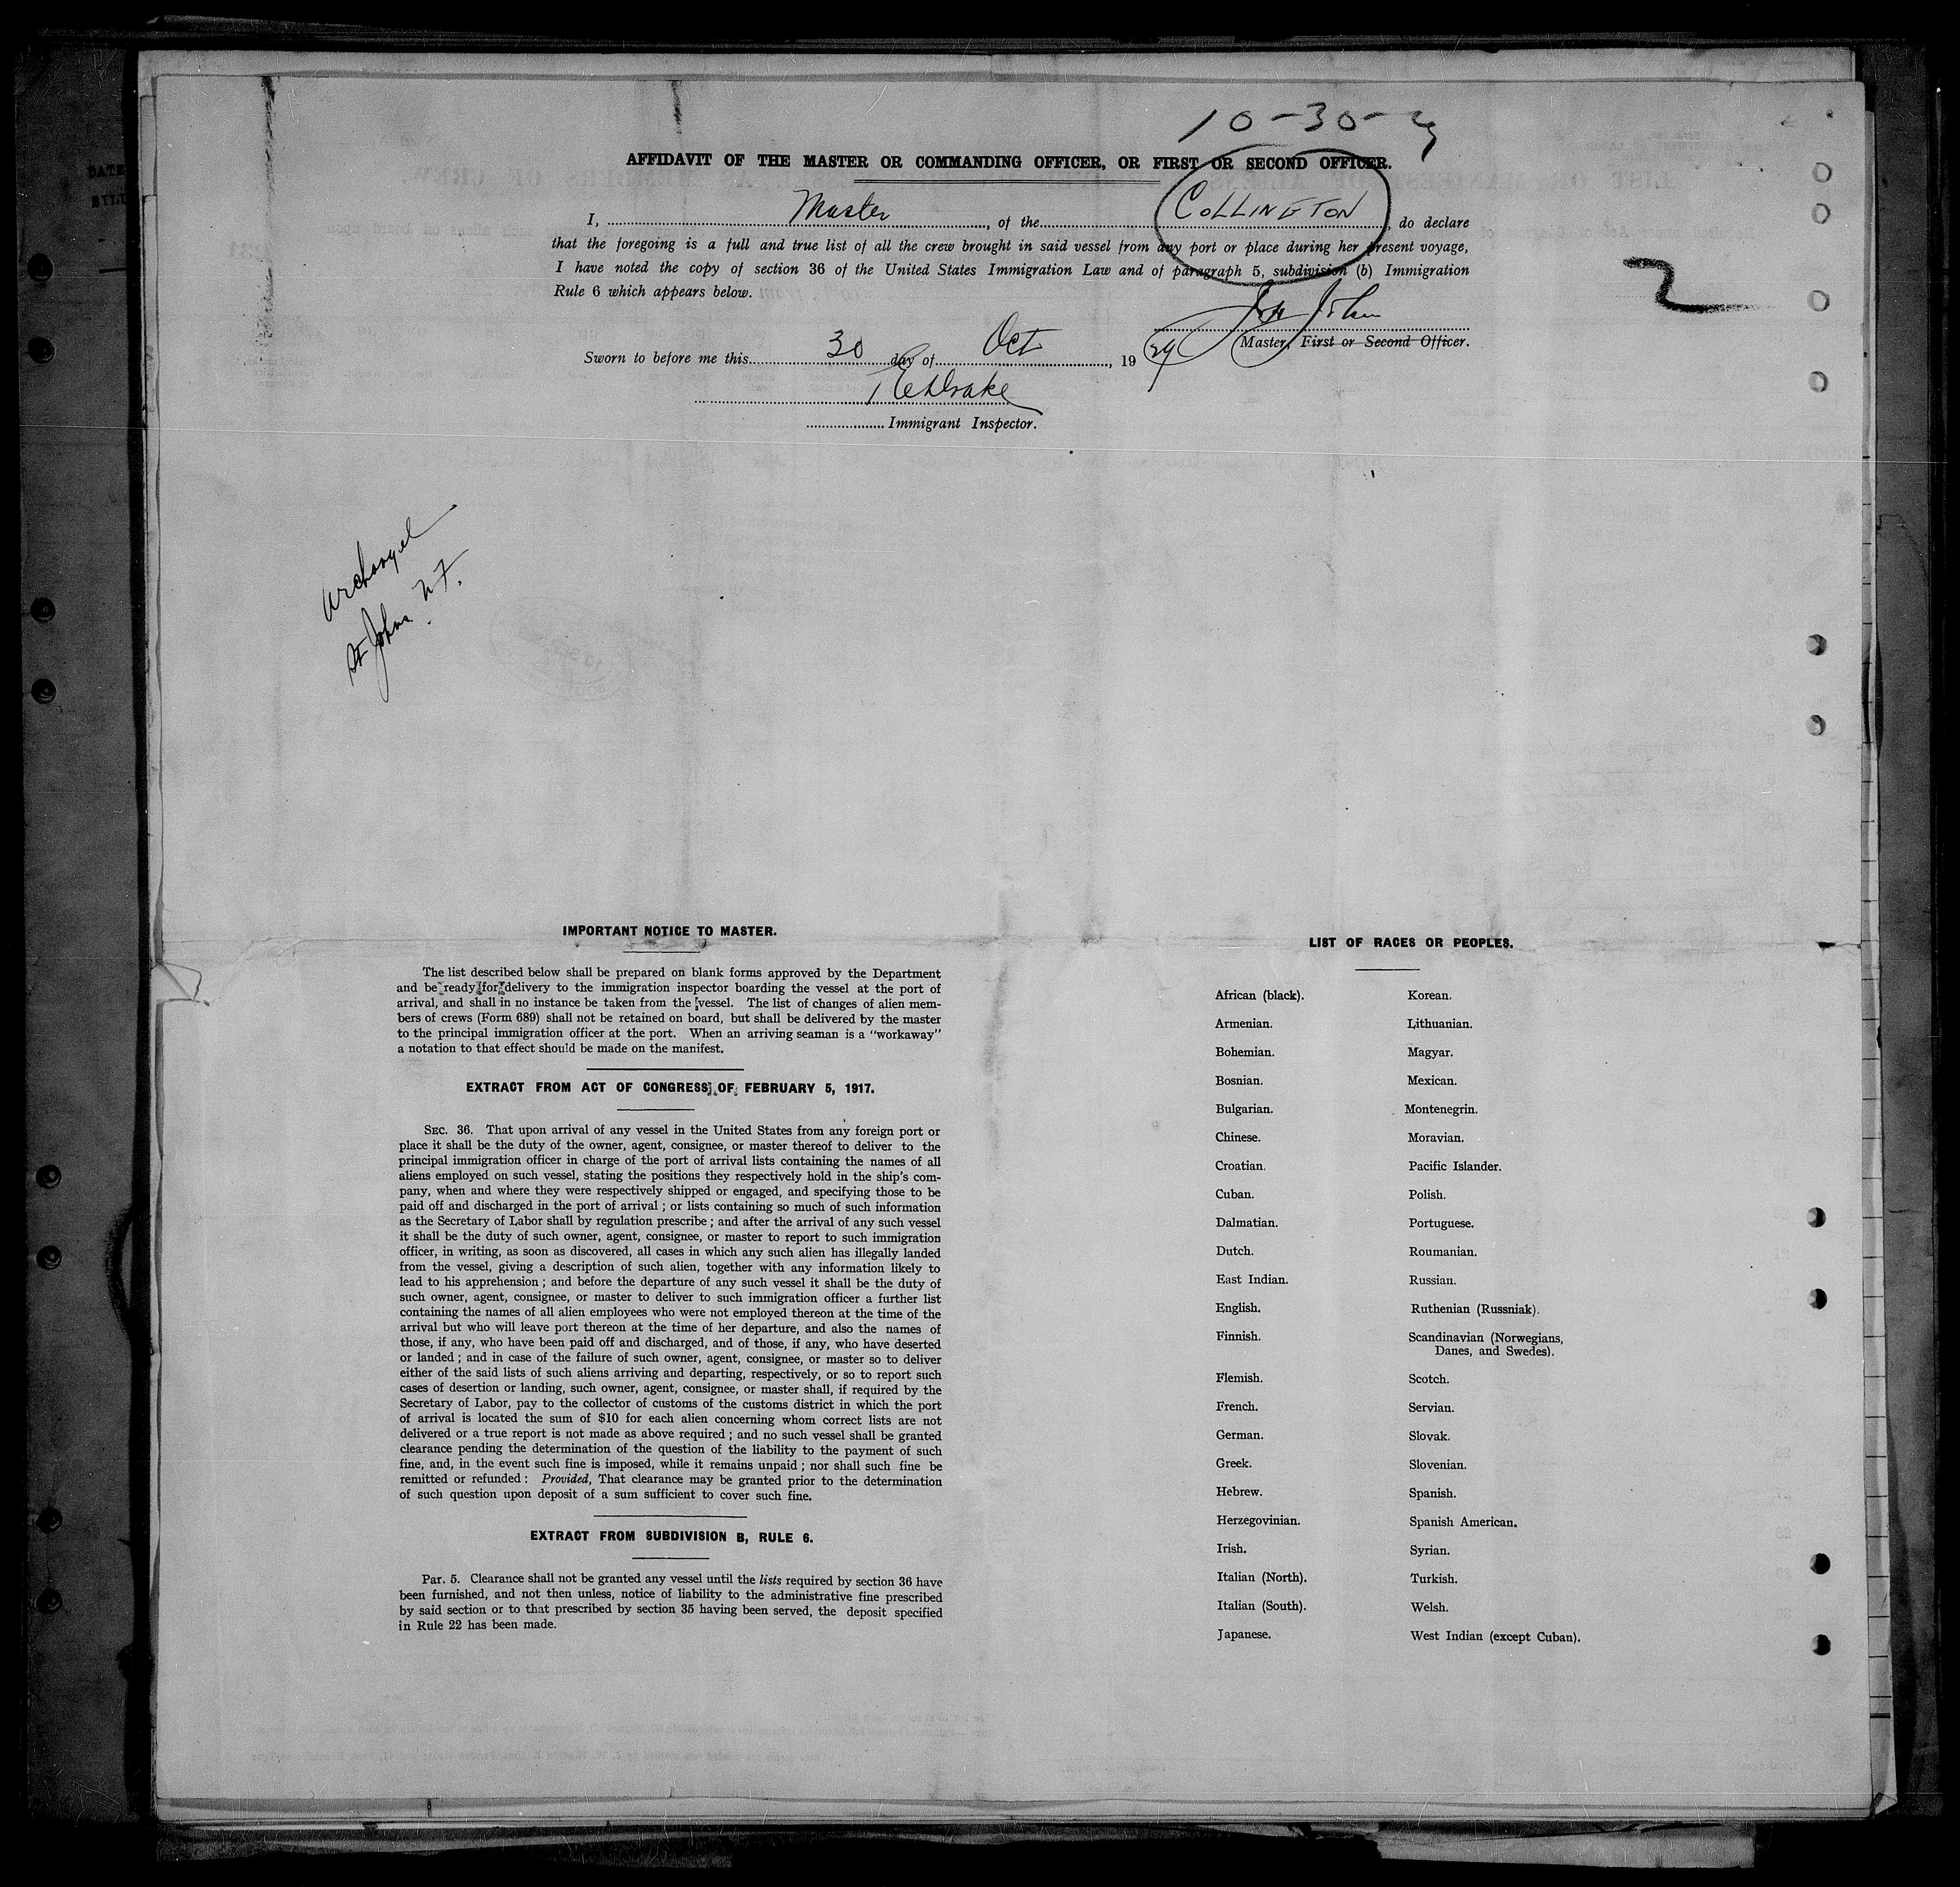 10-30-29
AFFIDAVIT OF THE MASTER OR COMMANDING OFFICER, OR FIRST OR SECOND OFFICER.
I, Master, of the COLLINGTON, do declare
that the foregoing is a full and true list of all the crew brought in said vessel from any port or place during her present voyage,
I have noted the copy of section 36 of the United States Immigration Law and of paragraph 5, subdivision (b) Immigration
Rule 6 which appears below.
2
Master, First or Second Officer.
Sworn to before me this 30 day of Oct, 1929
Drake
Immigrant Inspector.
Archangel
St Johns N F.
IMPORTANT NOTICE TO MASTER.
The list described below shall be prepared on blank forms approved by the Department
and be ready for delivery to the immigration inspector boarding the vessel at the port of
arrival, and shall in no instance be taken from the vessel. The list of changes of alien mem-
bers of crews (Form 689) shall not be retained on board, but shall be delivered by the master
to the principal immigration officer at the port. When an arriving seaman is a "workaway"
a notation to that effect should be made on the manifest.
EXTRACT FROM ACT OF CONGRESS OF FEBRUARY 5, 1917.
SEC. 36. That upon arrival of any vessel in the United States from any foreign port or
place it shall be the duty of the owner, agent, consignee, or master thereof to deliver to the
principal immigration officer in charge of the port of arrival lists containing the names of all
aliens employed on such vessel, stating the positions they respectively hold in the ship's com-
pany, when and where they were respectively shipped or engaged, and specifying those to be
paid off and discharged in the port of arrival; or lists containing so much of such information
as the Secretary of Labor shall by regulation prescribe; and after the arrival of any such vessel
it shall be the duty of such owner, agent, consignee, or master to report to such immigration
officer, in writing, as soon as discovered, all cases in which any such alien has illegally landed
from the vessel, giving a description of such alien, together with any information likely to
lead to his apprehension; and before the departure of any such vessel it shall be the duty of
such owner, agent, consignee, or master to deliver to such immigration officer a further list
containing the names of all alien employees who were not employed thereon at the time of the
arrival but who will leave port thereon at the time of her departure, and also the names of
those, if any, who have been paid off and discharged, and of those, if any, who have deserted
or landed; and in case of the failure of such owner, agent, consignee, or master so to deliver
either of the said lists of such aliens arriving and departing, respectively, or so to report such
cases of desertion or landing, such owner, agent, consignee, or master shall, if required by the
Secretary of Labor, pay to the collector of customs of the customs district in which the port
of arrival is located the sum of $10 for each alien concerning whom correct lists are not
delivered or a true report is not made as above required; and no such vessel shall be granted
clearance pending the determination of the question of the liability to the payment of such
fine, and, in the event such fine is imposed, while it remains unpaid; nor shall such fine be
remitted or refunded: Provided, That clearance may be granted prior to the determination
of such question upon deposit of a sum sufficient to cover such fine.
EXTRACT FROM SUBDIVISION B, RULE 6.
Par. 5. Clearance shall not be granted any vessel until the lists required by section 36 have
been furnished, and not then unless, notice of liability to the administrative fine prescribed
by said section or to that prescribed by section 35 having been served, the deposit specified
in Rule 22 has been made.
LIST OF RACES OR PEOPLES.
African (black).
Armenian.
Bohemian.
Bosnian.
Bulgarian.
Chinese.
Croatian.
Cuban.
Dalmatian.
Dutch.
East Indian.
English.
Finnish.
Flemish.
French.
German.
Greek.
Hebrew.
Herzegovinian.
Irish.
Italian (North).
Italian (South).
Japanese.
Korean.
Lithuanian.
Magyar.
Mexican.
Montenegrin.
Moravian.
Pacific Islander.
Polish.
Portuguese.
Roumanian.
Russian.
Ruthenian (Russniak).
Scandinavian (Norwegians,
Danes, and Swedes).
Scotch.
Servian.
Slovak.
Slovenian.
Spanish.
Spanish American.
Syrian.
Turkish.
Welsh.
West Indian (except Cuban).